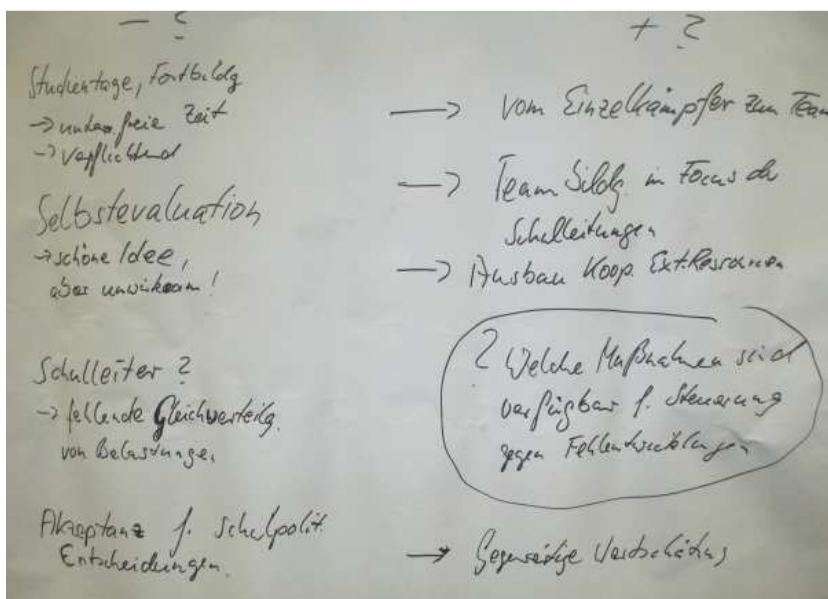 – ?
Studientage, Fortbildg
→ unterr.freie Zeit
→ verpflichtend
Selbstevaluation
→ schöne Idee,
aber unwirksam!
Schulleiter ?
→ fehlende Gleichverteilg.
von Belastungen
Akzeptanz f. schulpolit.
Entscheidungen.
+ ?
→ vom Einzelkämpfer zum Team
→ Teambildg. in Focus der
Schulleitungen
→ Ausbau Koop. Ext. Ressourcen
? Welche Maßnahmen sind
verfügbar f. Steuerung
gegen Fehlentwicklungen
→ Gegenseitige Wertschätzung